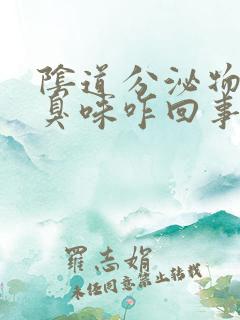 陰道分泌物
臭味咋回事
羅志娟
未經同意禁止轉載